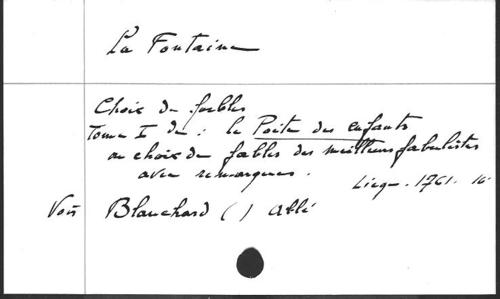 La Fontaine
Choix de fables
Tome I de : le Poète des enfants
ou choix de fables des meilleurs fabulistes
avec remarques.
Liège. 1761. 16°
Voir Blanchard ( ) Abbé